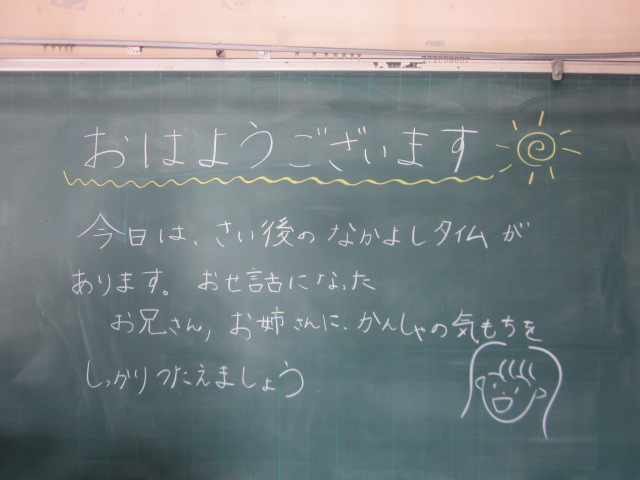 おはようございます
今日は、さい後のなかよしタイムが
あります。お世話になった
お兄さん,お姉さんに、かんしゃの気もちを
しっかりつたえましょう